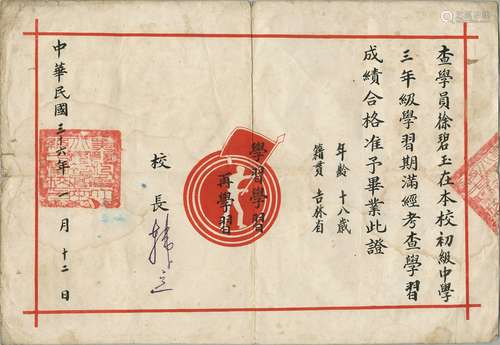 查學員徐碧玉在本校初級中學
三年級學習期滿經考查學習
成績合格准予畢業此證
年齡 十八歲
籍貫 吉林省
學習學習
再學習
校長 韓立
中華民國三十六年一月十二日